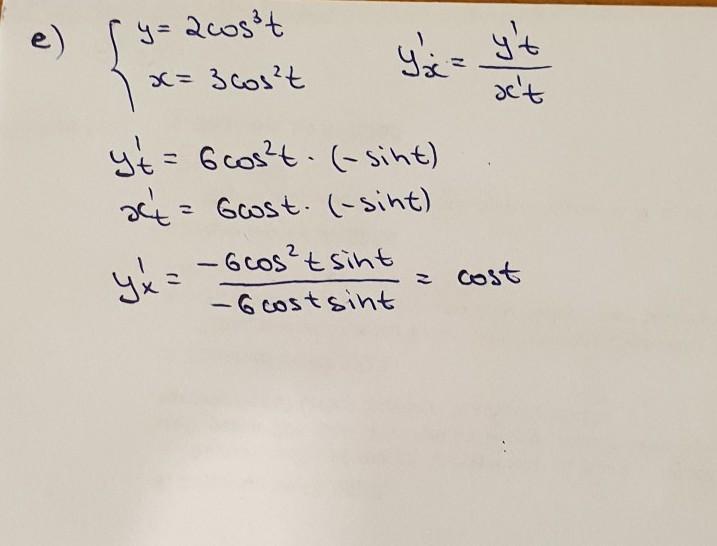 e) { y = 2cos³t
x = 3cos²t
y'ₓ = y't / x't
y't = 6cos²t · (-sint)
x't = 6cost · (-sint)
y'x = -6cos²t sint / -6cost sint = cost